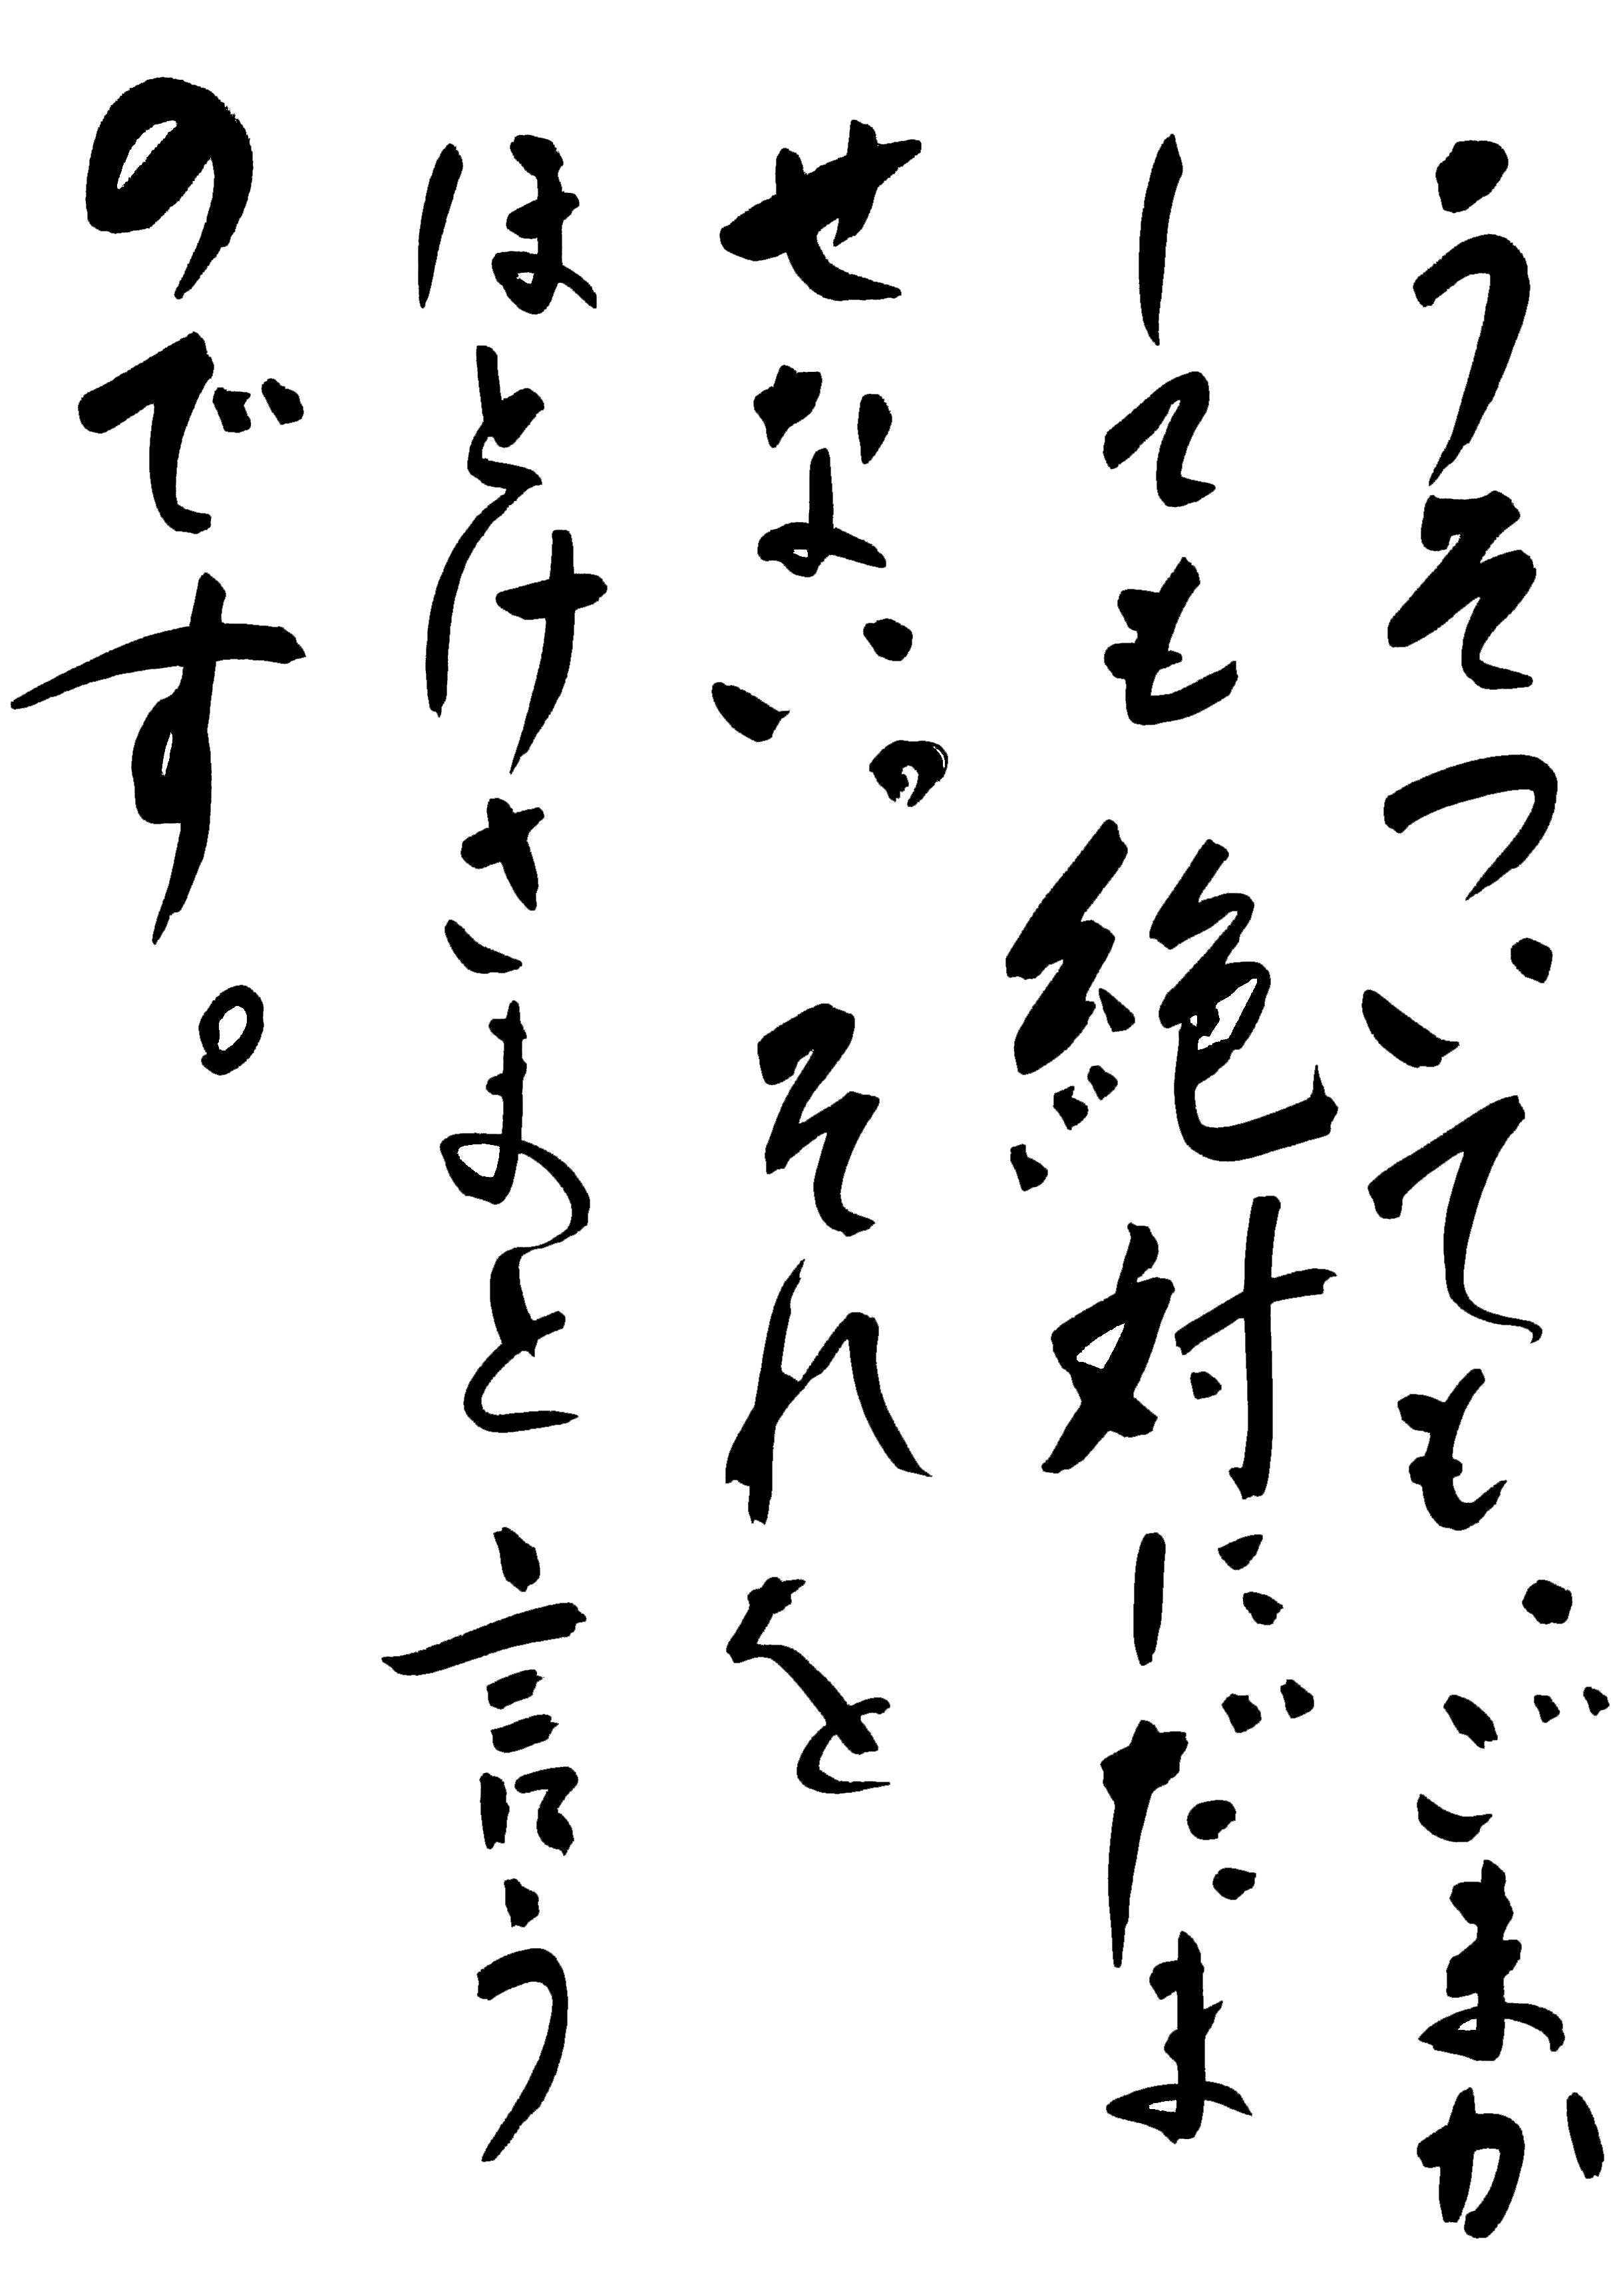 うそついてもごまか
しても絶対にだま
せない。それを
ほとけさまと言う
のです。